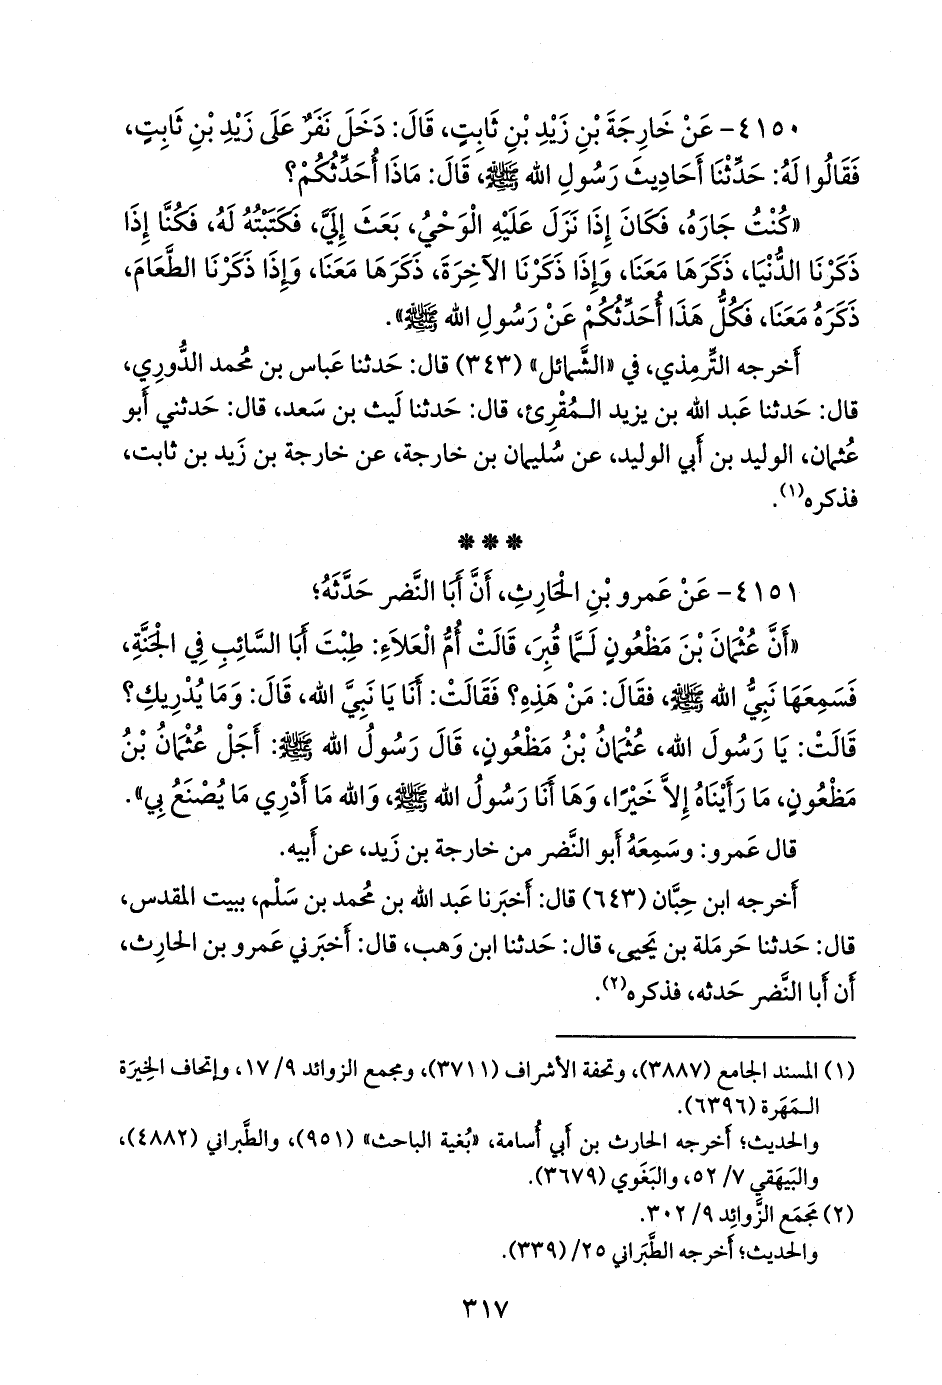 ٤١٥٠- عَنْ خَارِجَةَ بْنِ زَيْدِ بْنِ ثَابِتٍ، قَالَ: دَخَلَ نَفَرٌ عَلَى زَيْدِ بْنِ ثَابِتٍ،
فَقَالُوا لَهُ: حَدِّثْنَا أَحَادِيثَ رَسُولِ الله ﷺ، قَالَ: مَاذَا أُحَدِّثُكُمْ؟
«كُنْتُ جَارَهُ، فَكَانَ إِذَا نَزَلَ عَلَيْهِ الْوَحْيُ، بَعَثَ إِلَيَّ، فَكَتَبْتُهُ لَهُ، فَكُنَّا إِذَا
ذَكَرْنَا الدُّنْيَا، ذَكَرَهَا مَعَنَا، وَإِذَا ذَكَرْنَا الآخِرَةَ، ذَكَرَهَا مَعَنَا، وَإِذَا ذَكَرْنَا الطَّعَامَ،
ذَكَرَهُ مَعَنَا، فَكُلُّ هَذَا أُحَدِّثُكُمْ عَنْ رَسُولِ الله ﷺ».
أَخرجه التِّرمِذي، في «الشَّمائل» (٣٤٣) قال: حَدثنا عَباس بن مُحمد الدُّوري،
قال: حَدثنا عَبد الله بن يزيد الـمُقْرِئ، قال: حَدثنا لَيث بن سَعد، قال: حَدثني أَبو
عُثمان، الوليد بن أَبي الوليد، عن سُليمان بن خارجة، عن خارجة بن زَيد بن ثابت،
فذكره(١).
* * *
٤١٥١- عَنْ عَمرو بْنِ الْحَارِثِ، أَنَّ أَبَا النَّضر حَدَّثَهُ؛
«أَنَّ عُثْمَانَ بْنَ مَظْعُونٍ لَـمَّا قُبِرَ، قَالَتْ أُمُّ الْعَلَاءِ: طِبْتَ أَبَا السَّائِبِ فِي الْجَنَّةِ،
فَسَمِعَهَا نَبِيُّ الله ﷺ، فقَالَ: مَنْ هَذِهِ؟ فَقَالَتْ: أَنَا يَا نَبِيَّ الله، قَالَ: وَمَا يُدْرِيكِ؟
قَالَتْ: يَا رَسُولَ الله، عُثْمَانُ بْنُ مَظْعُونٍ، قَالَ رَسُولُ الله ﷺ: أَجَلْ عُثْمَانُ بْنُ
مَظْعُونٍ، مَا رَأَيْنَاهُ إِلاَّ خَيْرًا، وَهَا أَنَا رَسُولُ الله ﷺ، وَالله مَا أَدْرِي مَا يُصْنَعُ بِي».
قال عَمرو: وسَمِعَهُ أَبو النَّضر من خارجة بن زَيد، عن أَبيه.
أَخرجه ابن حِبَّان (٦٤٣) قال: أَخبَرنا عَبد الله بن مُحمد بن سَلْم، ببيت المقدس،
قال: حَدثنا حَرمَلة بن يَحيى، قال: حَدثنا ابن وَهب، قال: أَخبَرني عَمرو بن الحارِث،
أَن أَبا النَّضر حَدثه، فذكره(٢).
(١) المسند الجامع (٣٨٨٧)، وتحفة الأشراف (٣٧١١)، ومجمع الزوائد ٩/ ١٧، وإتحاف الخِيرَة
الـمَهَرة (٦٣٩٦).
والحديث؛ أَخرجه الحارث بن أَبي أُسامة، «بُغية الباحث» (٩٥١)، والطَّبراني (٤٨٨٢)،
والبَيهَقي ٧/ ٥٢، والبَغَوي (٣٦٧٩).
(٢) مَجمَع الزَّوائِد ٩/ ٣٠٢.
والحديث؛ أَخرجه الطَّبَراني ٢٥/ (٣٣٩).
٣١٧